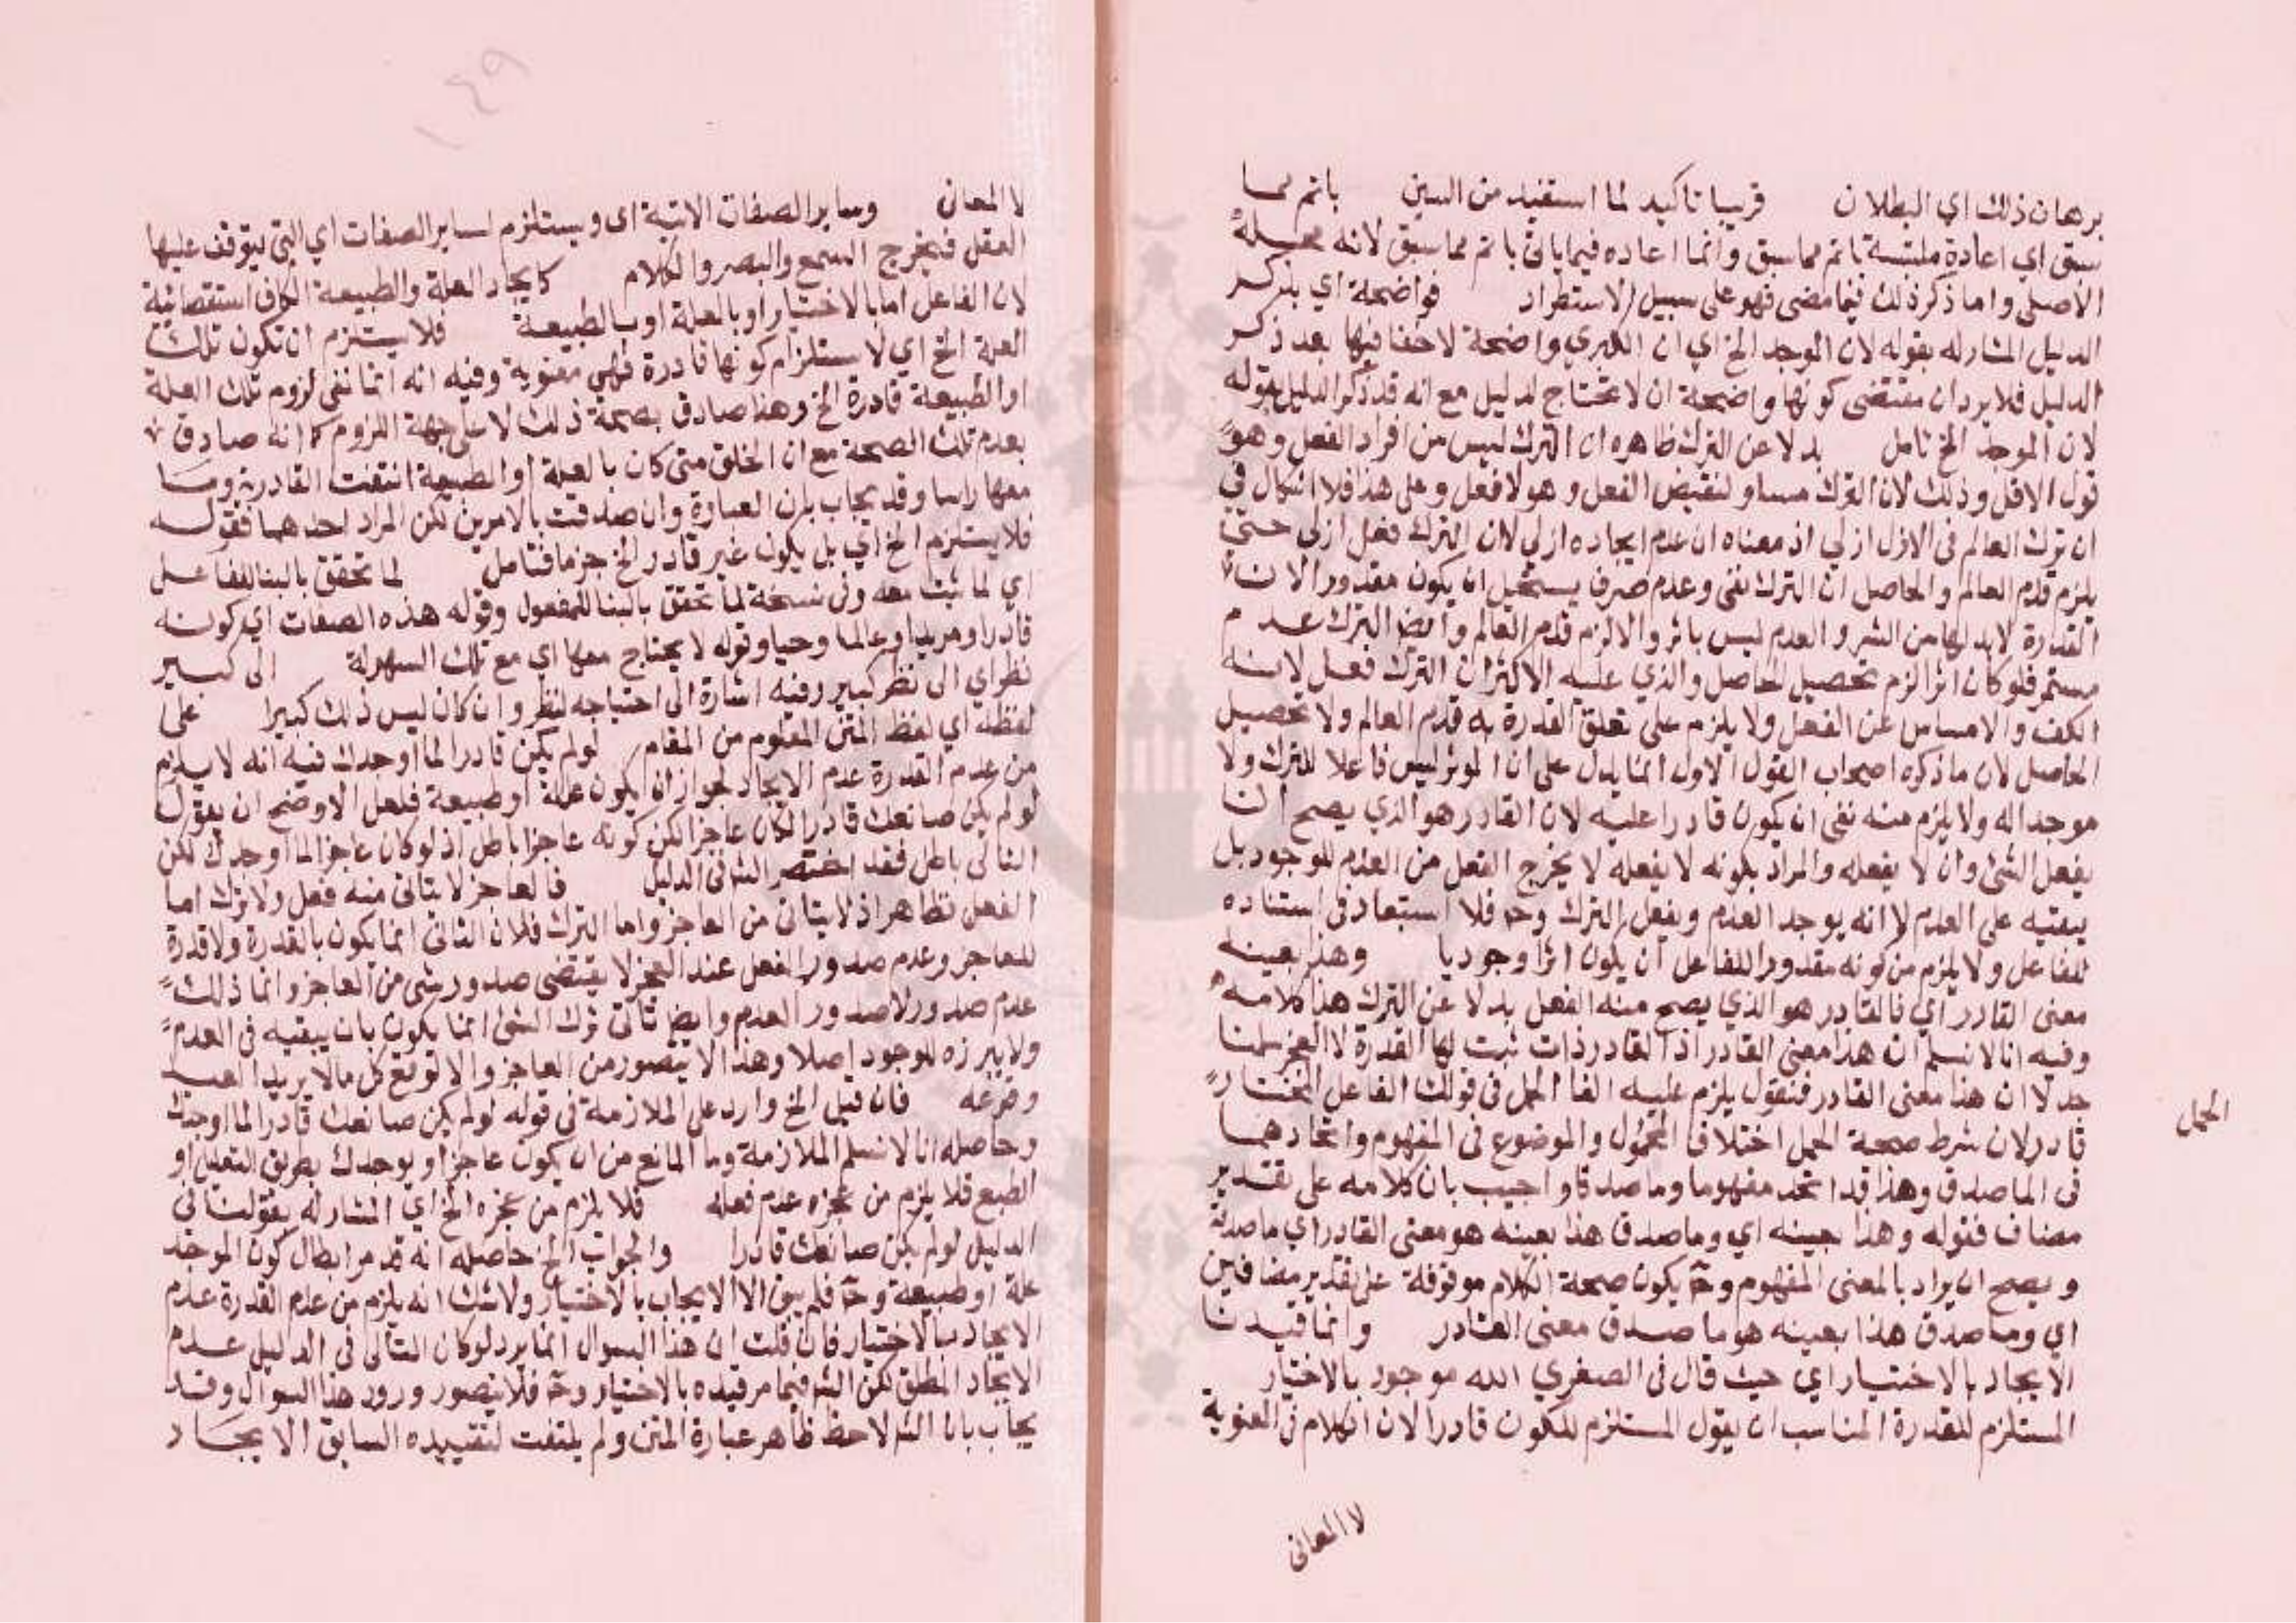 برهان ذلك اي البطلان قريبا تاكيد لما استفيد من السين باتم مما
سبق اي اعادة ملتبسة باتم مما سبق وانما اعاده فيما ياتي باتم مما سبق لانه محله
الاصلي واما ذكر ذلك فيما مضى فهو على سبيل الاستطراد فواضحة اي بذكر
الدليل المشار له بقوله لان الموجد الخ اي ان الكبري واضحة لا خفا فيها بعد ذكر
الدليل فلا يرد ان مقتضى كونها واضحة ان لا تحتاج لدليل مع انه قد ذكر الدليل بقوله
لان الموجد الخ تامل بدلا عن الترك ظاهره ان الترك ليس من افراد الفعل وهو
قول الاقل وذلك لان الترك مساو لنقيض الفعل وهو لا فعل وعلى هذا فلا اشكال في
ان ترك العالم في الازل ازلي اذ معناه ان عدم ايجاده ازلي لان الترك فعل ازلي حتى
يلزم قدم العالم والحاصل ان الترك نفي وعدم صرف يستحيل ان يكون مقدورا لان
القدرة لابد لها من اثر والعدم ليس باثر والا لزم قدم العالم وايض الترك عدم
مستمر فلو كان اثرا لزم تحصيل الحاصل والذي عليه الاكثر ان الترك فعل لانه
الكف والامساس عن الفعل ولا يلزم على تعلق القدرة به قدم العالم ولا تحصيل
الحاصل لان ما ذكره اصحاب القول الاول انما يدل على ان الموثر ليس فاعلا للترك ولا
موجدا له ولا يلزم منه نفي ان يكون قادرا عليه لان القادر هو الذي يصح ان
يفعل الشئ وان لا يفعله والمراد بكونه لا يفعله لا يخرج الفعل من العدم للوجود بل
يبقيه على العدم لا انه يوجد العدم ويفعل الترك وح فلا استبعاد في استناده
للفاعل ولا يلزم من كونه مقدورا للفاعل ان يكون اثرا وجوديا وهذا بعينه
معنى القادر اي فالقادر هو الذي يصح منه الفعل بدلا عن الترك هذا كلامه
وفيه انا لا نسلم ان هذا معنى القادر اذ القادر ذات ثبت لها القدرة لا الخ سلمنا
جدلا ان هذا معنى القادر فنقول يلزم عليه الغا الحمل في قولك الفاعل المختار
الحمل
قادر لان شرط صحة الحمل اختلاف المحمول والموضوع في المفهوم واتحادهما
في الماصدق وهذا قد اتحد مفهوما وماصدقا واجيب بان كلامه على تقدير
مضاف فقوله وهذا بعينه اي وماصدق هذا بعينه هو معنى القادر اي ماصدقه
ويصح ان يراد بالمعنى المفهوم وح يكون صحة الكلام موقوفة على تقدير مضافين
اي وماصدق هذا بعينه هو ماصدق معنى القادر وانما قيدنا
الايجاد بالاختيار اي حيث قال في الصغري الله موجود بالاختيار
المستلزم للقدرة المناسب ان يقول المستلزم للكون قادرا لان الكلام في المعنوية
لا المعاني
لا المعاني وساير الصفات الاتية اي ويستلزم لساير الصفات اي التي يتوقف عليها
العقل فيخرج السمع والبصر والكلام كايجاد العلة والطبيعة الكاف استقصائية
لان الفاعل اما بالاختيار او بالعلة او بالطبيعة فلا يستلزم ان تكون تلك
العلة الخ اي لا يستلزام كونها قادرة فهي معنوية وفيه انه انما نفي لزوم تلك العلة
او الطبيعة قادرة الخ وهذا صادق بصحة ذلك لا على جهة اللزوم كما انه صادق
بعدم تلك الصحة مع ان الخلق متى كان بالعلة او الطبيعة انتفت القادرية وما
معها راسا وقد يجاب بان العبارة وان صدقت بالامرين لكن المراد احدهما فقوله
فلا يستلزم الخ اي بل يكون غير قادر الخ جزما فتامل لما تحقق بالبنا للفاعل
اي لما ثبت معه وفي نسخة لما تحقق بالبنا للمفعول وقوله هذه الصفات اي كونه
قادرا ومريدا وعالما وحيا وقوله لا يحتاج معها اي مع تلك السهولة الى كبير
نظر اي الى نظر كبير وفيه اشارة الى احتياجه لنظر وان كان ليس ذلك كبيرا على
لفظه اي لفظ المتن المعلوم من المقام لو لم يكن قادرا لما اوجدك فيه انه لا يلزم
من عدم القدرة عدم الايجاد لجواز ان يكون علة او طبيعة فلعل الاوضح ان يقول
لو لم يكن صانعك قادرا لكان عاجزا لكن كونه عاجزا باطل اذ لو كان عاجزا لما اوجدك لكن
التالي باطل فقد اختصر الشه في الدليل فالعاجز لا يتاتى منه فعل ولا ترك اما
الفعل فظاهر اذ لا يتاتى من العاجز واما الترك فلان الثاني انما يكون بالقدرة ولا قدرة
للعاجز وعدم صدور الفعل عند العجز لا يقتضي صدور شي من العاجز وانما ذلك
عدم صدور لا صدور العدم وايض تاتى ترك الشئ انما يكون بان يبقيه في العدم
ولا يبرزه للوجود اصلا وهذا لا يتصور من العاجز والا لوقع كل ما لا يريد العبد
وقوعه فان قيل الخ وارد على الملازمة في قوله لو لم يكن صانعك قادرا لما اوجدك
وحاصله انا لا نسلم الملازمة وما المانع من ان يكون عاجزا ويوجدك بطريق التعليل او
الطبع فلا يلزم من عجزه عدم فعله فلا يلزم من عجزه الخ اي المشار له بقولنا في
الدليل لو لم يكن صانعك قادرا والجواب الخ حاصله انه قد مر ابطال كون الموجد
علة او طبيعة وح فلم يبق الا الايجاب بالاختيار ولا شك انه يلزم من عدم القدرة عدم
الايجاد بالاختيار فان قلت ان هذا السوال انما يرد لو كان التالي في الدليل عدم
الايجاد المطلق لكن الشه فيما مر قيده بالاختيار وح فلا يتصور ورود هذا السوال وقد
يجاب بان الشه لاحظ ظاهر عبارة المتن ولم يلتفت لتقييده السابق الايجاد